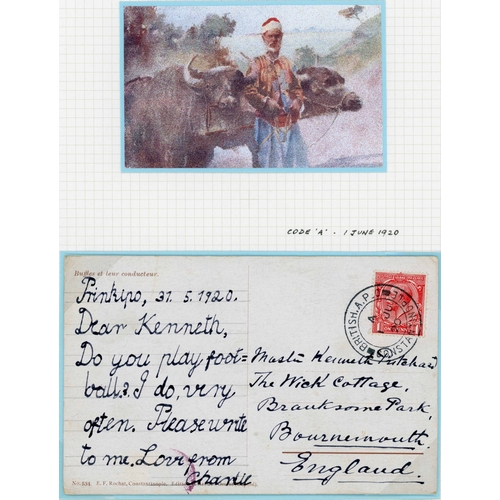 CODE 'A' - 1 JUNE 1920
Buffles et leur conducteur.
Prinkipo, 31. 5. 1920.
Dear Kenneth,
Do you play foot-
ball? I do, very
often. Please write
to me. Love from
Charlie
Master Kenneth
The Wick Cottage,
Branksome Park,
Bournemouth.
England.
BRITISH. A.P.
CONSTA
No. E. F. Rochat, Constantinople.